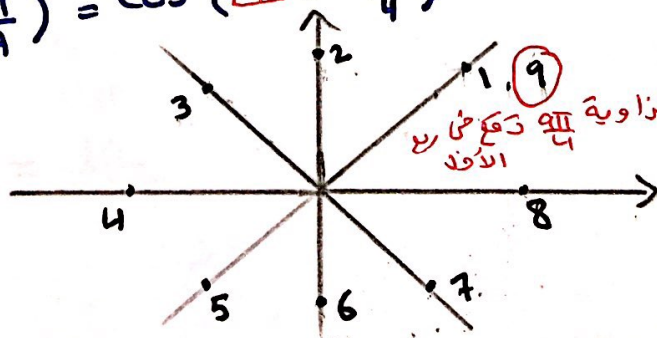 ) = cos (
4
2
3
1, 9
زاوية 9π/4 تقع في ربع
الأول
4
8
5
6
7.